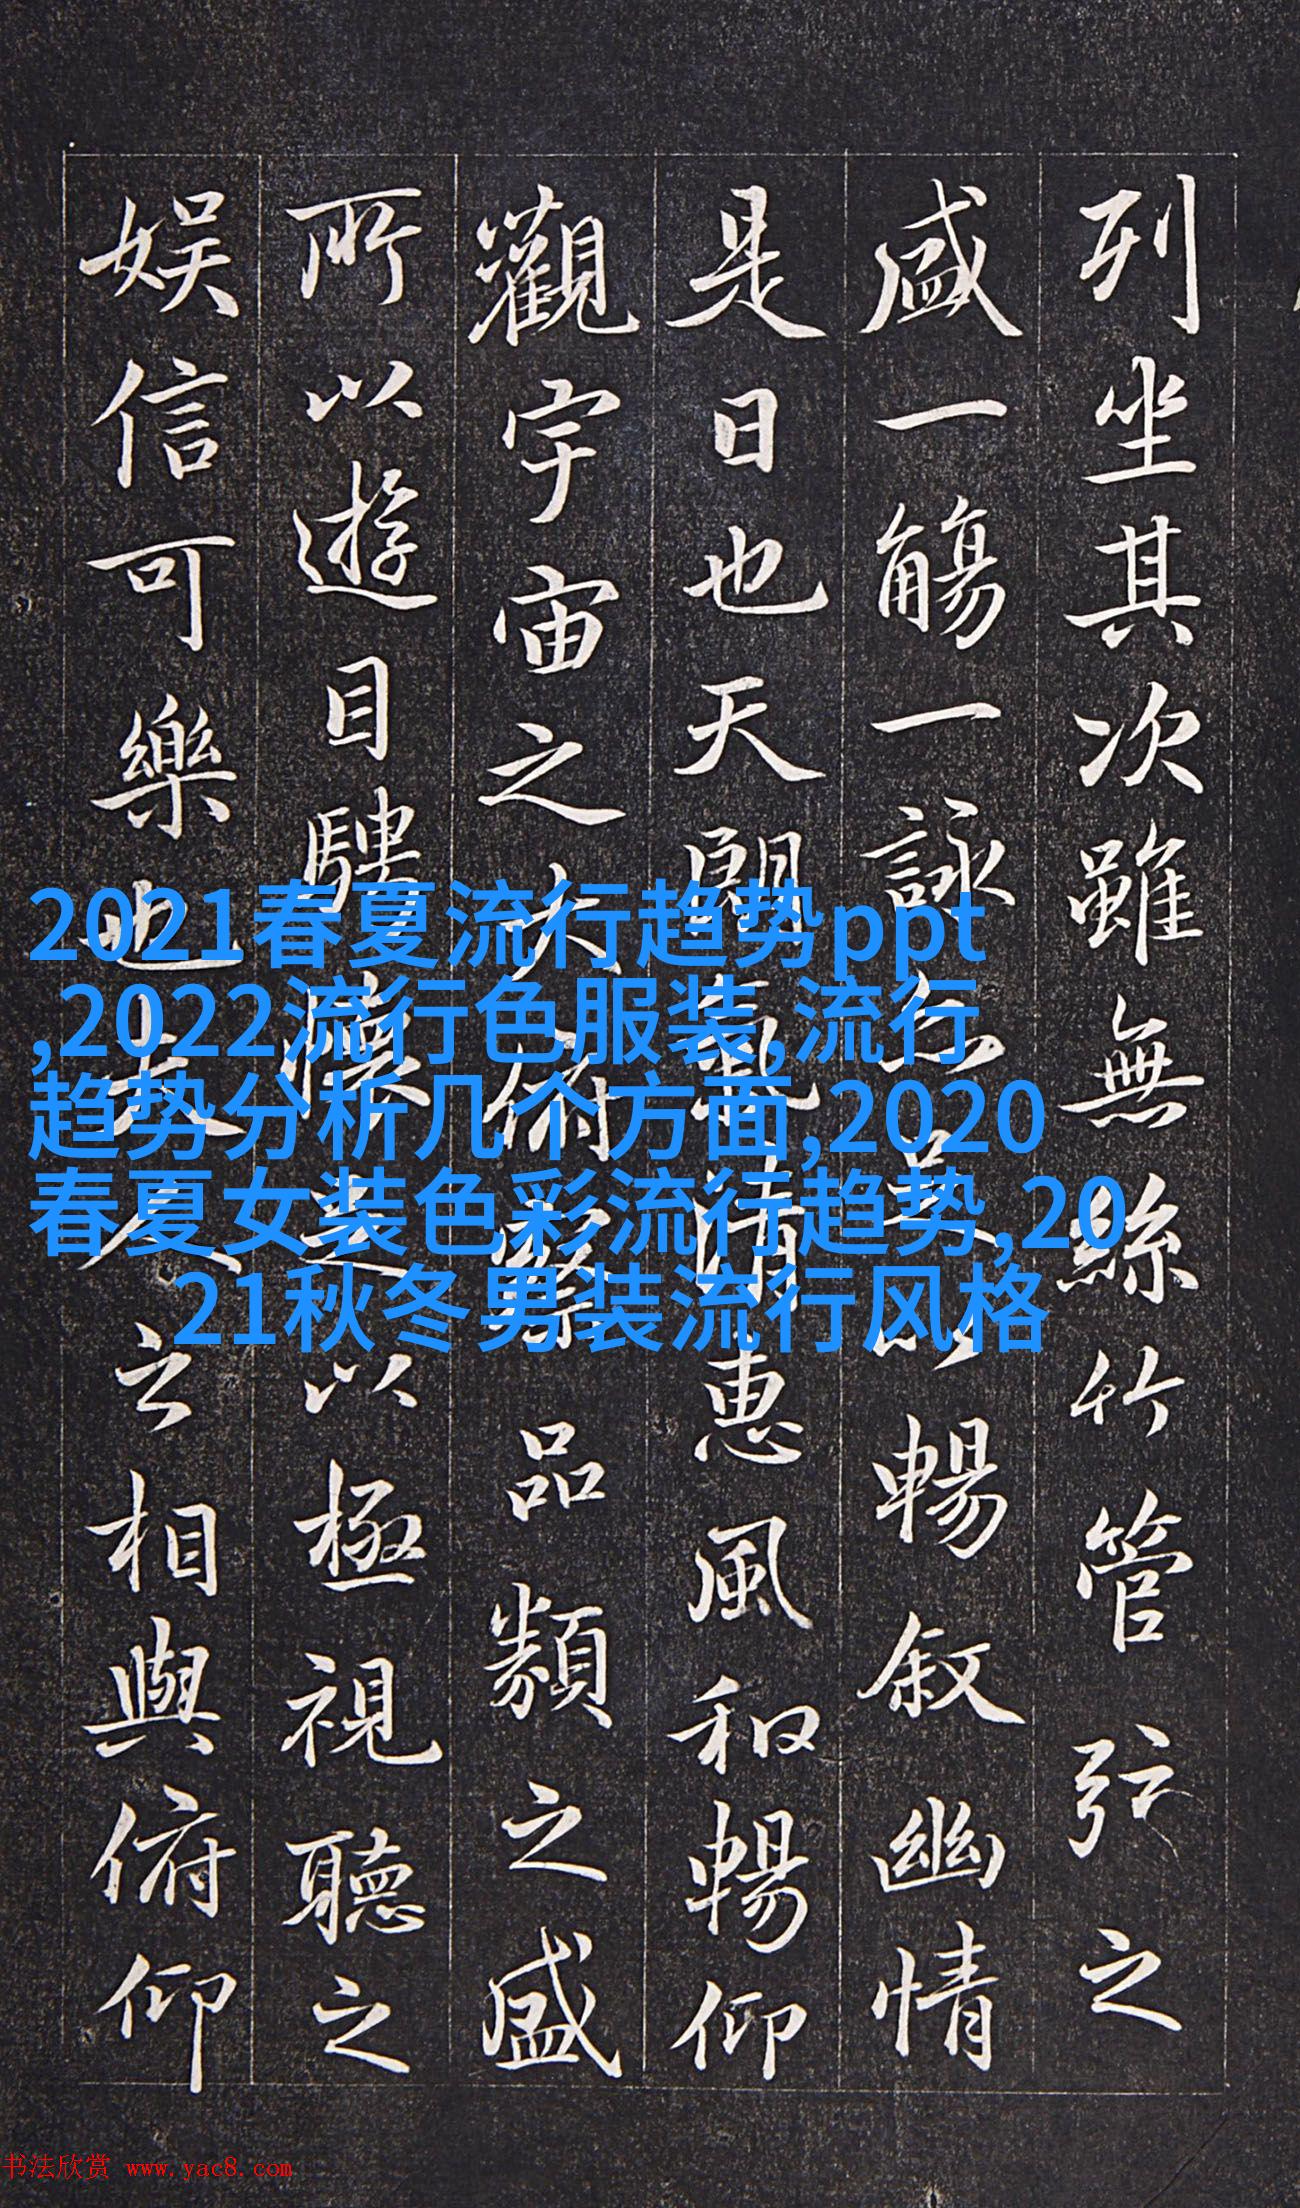 列坐其次雖無絲竹管弦之
盛一觴一詠亦足以暢敘幽情
是日也天朗氣清惠風和暢仰
觀宇宙之大俯察品類之盛
所以遊目騁懷足以極視聽之
娛信可樂也夫人之相與俯仰
2021春夏流行趋势ppt
,2022流行色服装,流行
趋势分析几个方面,2020
春夏女装色彩流行趋势,20
21秋冬男装流行风格
书法欣赏 www.yac8.com